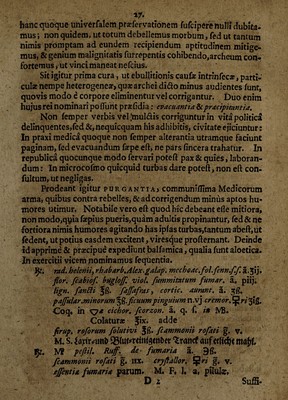 27.
hanc quoque universalem præservationem suscipere nulli dubita-
mus; non quidem. ut totum debellemus morbum, sed ut tantum
nimis promptam ad eundem recipiendum aptitudinem mitige-
mus, & genium malignitatis surrepentis cohibendo, archeum con-
fortemus, ut vinci maneat nescius.
Sit igitur prima cura, ut ebullitionis causæ intrinsecæ, parti-
culæ nempe heterogeneæ, quæ archei dicto minus audientes sunt,
quovis modo è corpore eliminentur vel corrigantur. Duo enim
hujus rei nominari possunt præsidia: evacuantia & præcipitantia.
Non semper verbis vel mulctis corriguntur in vitâ politicâ
delinquentes, sed &, nequicquam his adhibitis, civitate ejiciuntur:
In praxi medicâ quoque non semper alterantia utramque faciunt
paginam, sed evacuandum sepe est, ne pars sincera trahatur. In
republicâ quocunque modo servari potest pax & quies, laboran-
dum: In microcosmo quicquid turbas dare potest, non est con-
sultum, ut negligas.
Prodeant igitur PURGANTIA, communissima Medicorum
arma, quibus contra rebelles, & ad corrigendum minùs aptos hu-
mores utimur. Notabile vero est quod hîc debeant esse mitiora,
non modo, quia sæpius pueris, quàm adultis propinantur, sed & ne
fortiora nimis humores agitando has ipsas turbas, tantum abest, ut
sedent, ut potius easdem excitent, viresque prosternant. Deinde
id apprimè & præcipuè expediunt balsamica, qualia sunt aloetica.
In exercitii vicem nominamus sequentia.
℞. rad. helenii, rhabarb. Alex. galap. mechoac. fol. senn. s. s. ā. ʒij.
flor. scabios. bugloss. viol. summitatum fumar. ā. piij.
lign. sancti ʒß. sassafras, cortic. aurant. ā. ʒß.
passular. minorum ℥ß. ficuum pinguium n. vj cremor.
Coq. in cichor. scorzon. ā. q. s. in
Colaturæ ℥ix. adde
sirup. rosarum solutivi ℥ß. scammonii rosati g. v.
M. S. Laxir- und Blut-reinigender Tranck auf etlicht mahl.
℞. pestil. Ruff. de fumaria ā. ℈ß.
scammonii rosati g. iix. crystallor. g. v.
essentia fumaria parum. M. F. l. a. pilulæ.
D 2
Suffi-